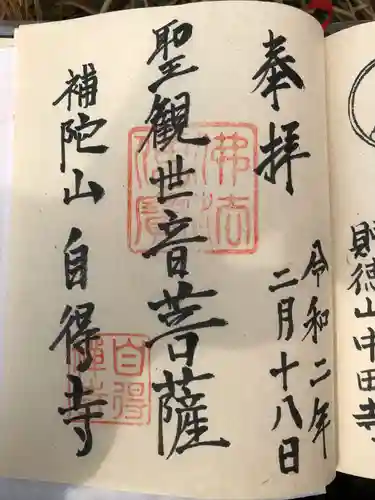 奉拝
令和二年
二月十八日
聖観世音菩薩
補陀山 自得寺
佛法僧寶
財徳山中田寺